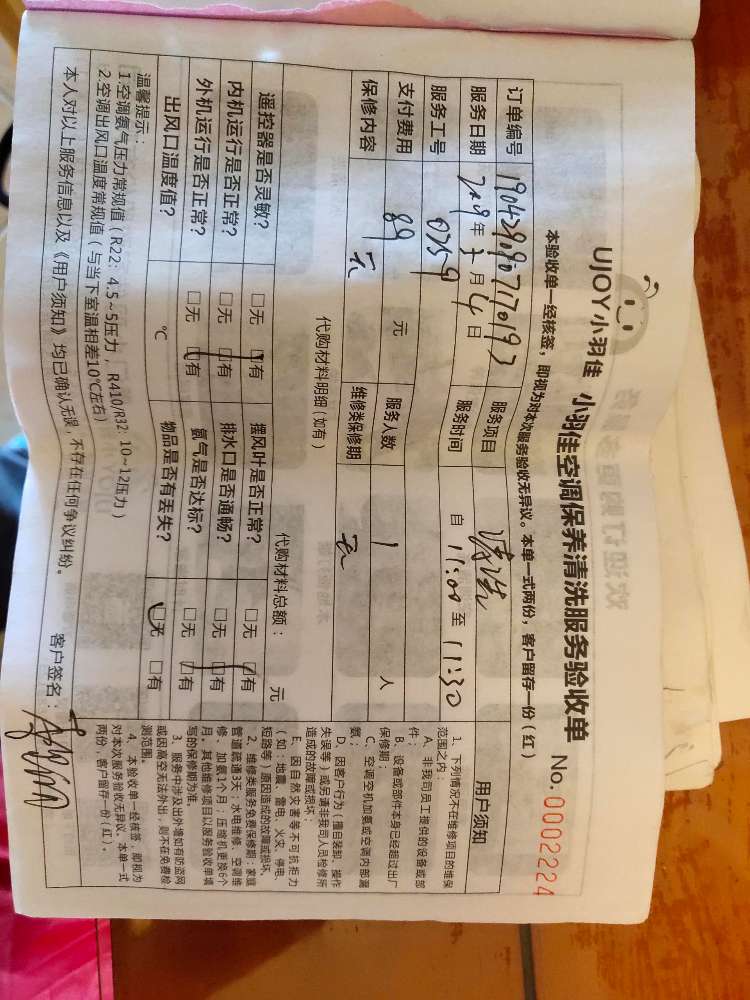 UJOY小羽佳 小羽佳空调保养清洗服务验收单 No.0002224
本验收单一经核签，即视为对本次服务验收无异议。本单一式两份，客户留存一份（红）
订单编号 服务项目 清洗
服务日期 年 月 日 服务时间 自 11:00 至 11:30
服务工号 0759
支付费用 89 元 服务人数 1 人
保修内容 无 维修类保修期 无
代购材料明细(如有) 代购材料总额： 元
遥控器是否灵敏？ □无 □有 摆风叶是否正常？ □无 □有
内机运行是否正常？ □无 □有 排水口是否通畅？ □无 □有
外机运行是否正常？ □无 □有 氨气是否达标？ □无 □有
出风口温度值？ ℃ 物品是否有丢失？ □无 □有
温馨提示：
1.空调氨气压力常规值（R22：4.5~5压力，R410/R32：10~12压力）
2.空调出风口温度常规值（与当下室温相差10℃左右）
本人对以上服务信息以及《用户须知》均已确认无误，不存在任何争议纠纷。 客户签名：
用户须知
1、下列情况不在维修项目的维保
范围之内：
A、非我司员工提供的设备或部
件；
B、设备或部件本身已经超过出厂
保修期；
C、空调空机加氨或空调内部漏
氨；
D、因客户行为（擅自装卸、操作
失误等）或另请非我司人员检修所
造成的故障或损坏；
E、因自然灾害等不可抗拒力
（如：地震、雷电、火灾、停电、
短路等）原因造成的故障或损坏。
2、维修类服务免费保修期：家庭
管道疏通3天；水电维修、空调维
修、加氨1个月；压缩机更换6个
月。其他维修项目以服务验收单填
写的保修期为准。
3、服务中涉及出外墙如有防盗网
或因高空无法外出，则不在免费检
测范围。
4、本验收单一经核签，即视为
对本次服务验收无异议。本单一式
两份，客户留存一份（红）。